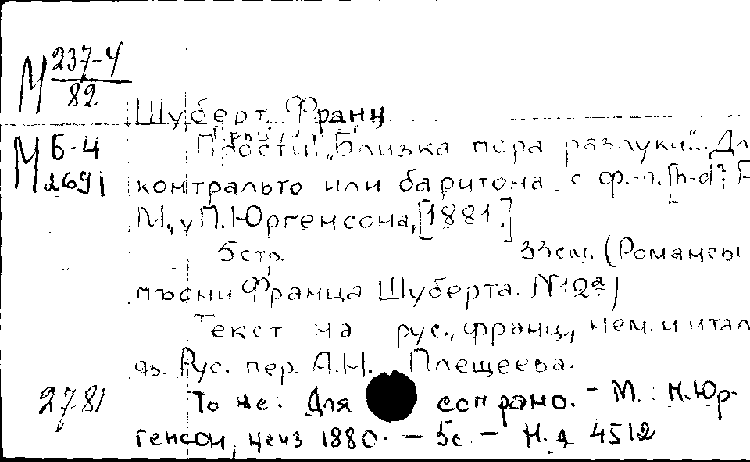 М 237-4/82
Шуберт, Франц
М Б-4/2691
Прости! "Близка пора разлуки". Дл
контральто или баритона с ф.-п. [h-d²;
М., у П. Юргенсона, [1881.]
5 стр. 33 см. (Романсы
пѣсни Франца Шуберта. № 12а)
Текст на рус., франц., нем. и итал
яз. Рус. пер. А.Н. Плещеева.
2781 То же. Для сопрано. - М.: П. Юр-
генсон, ценз 1880. - 5с. - Н.д 4512